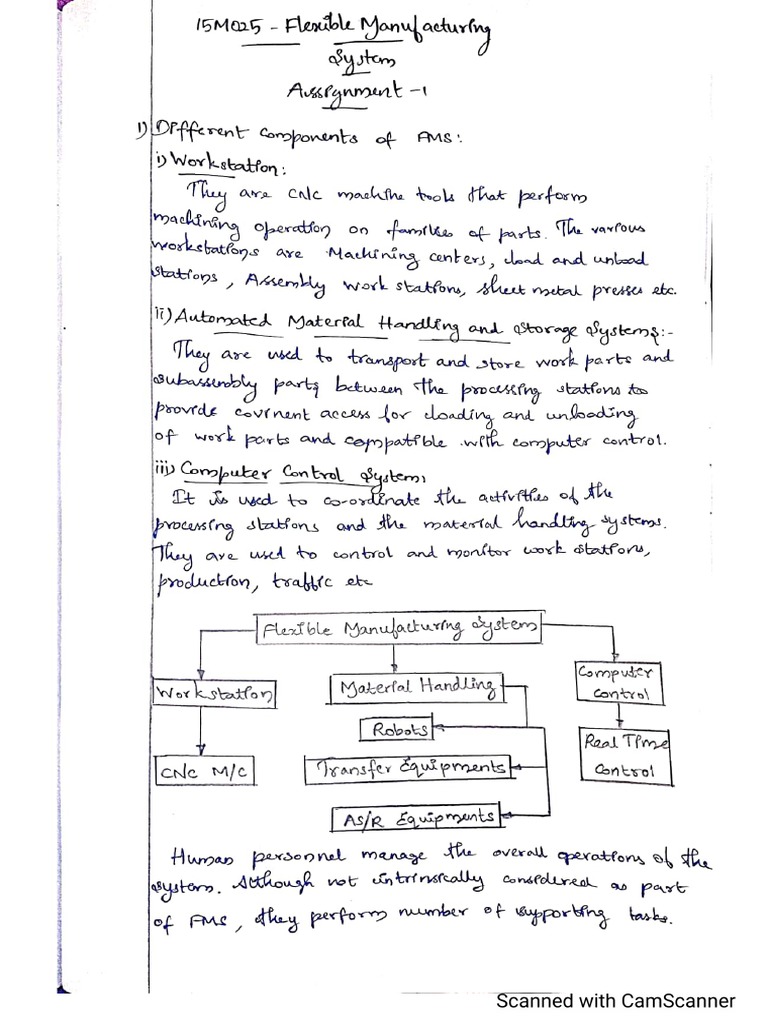 15M025 - Flexible Manufacturing
System
Assignment -1
1) Different components of FMS:
i) Workstation:
They are CNC machine tools that perform
machining operation on families of parts. The various
workstations are Machining centers, load and unload
stations, Assembly work stations, sheet metal presses etc.
ii) Automated Material Handling and Storage Systems:-
They are used to transport and store work parts and
subassembly parts between the processing stations to
provide covinent access for loading and unloading
of work parts and compatible with computer control.
iii) Computer Control System:
It is used to co-ordinate the activities of the
processing stations and the material handling systems.
They are used to control and monitor work stations,
production, traffic etc
Flexible Manufacturing System
Workstation
Material Handling
Computer
Control
Robots
CNC M/C
Transfer Equipments
Real Time
Control
AS/R Equipments
Human personnel manage the overall operations of the
system. Although not intrinsically considered as part
of FMS, they perform number of supporting tasks.
Scanned with CamScanner